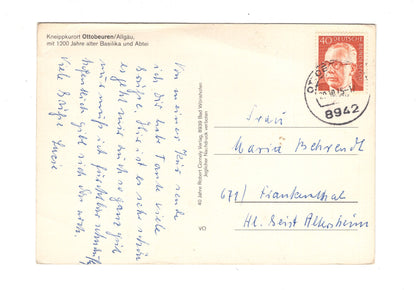 Kneippkurort Ottobeuren/Allgäu,
mit 1200 Jahre alter Basilika und Abtei
Von meiner Kur sende
ich Dir liebe Tante viele
Grüße. Hier ist es sehr schön
es geht mir auch ganz gut
nur muß ich furchtbar
hoffentlich gibt sich das noch.
Viele Grüße
40 Jahre Robert Gomely Verlag, 8939 Bad Wörishofen
Jeglicher Nachdruck verboten
VO
40 DEUTSCHE BUNDESPOST
8942
Frau
Maria Behrendt
Frankenthal
Hl. Geist Altersheim